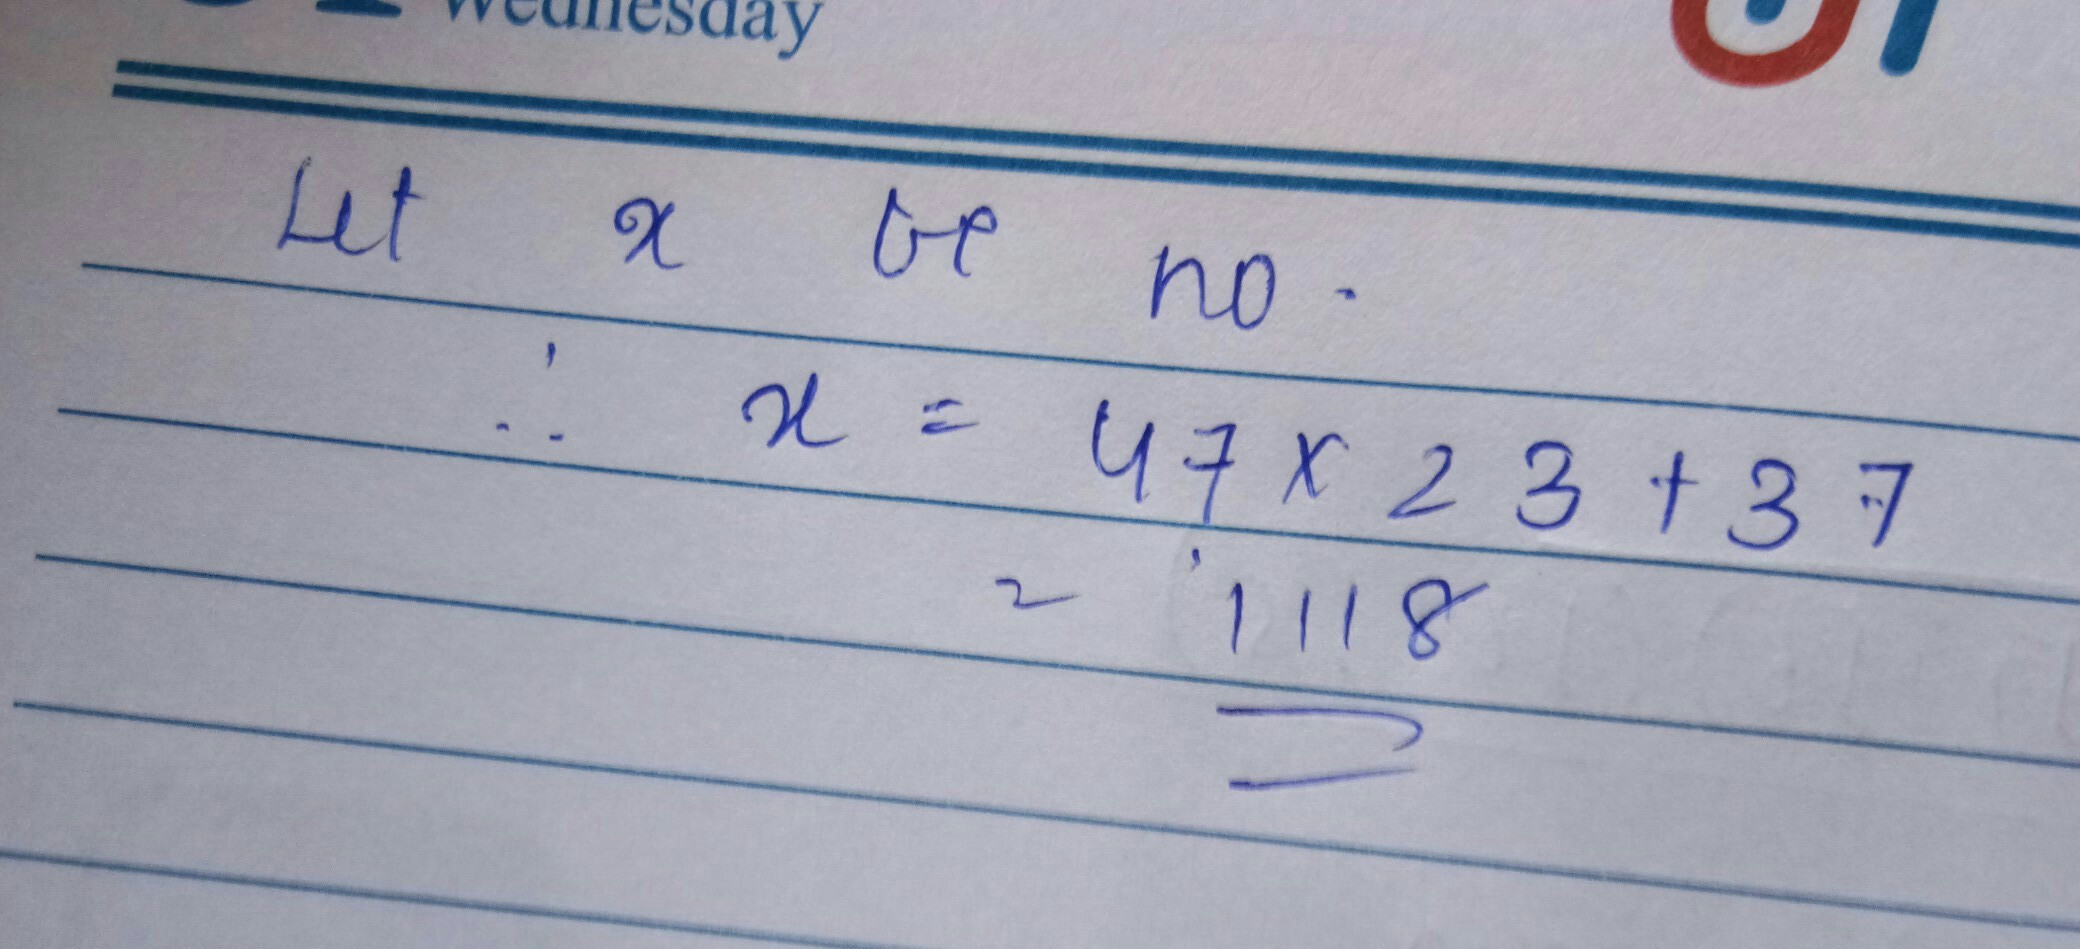 Wednesday
Let x be no.
∴ x = 47 × 23 + 37
= 1118